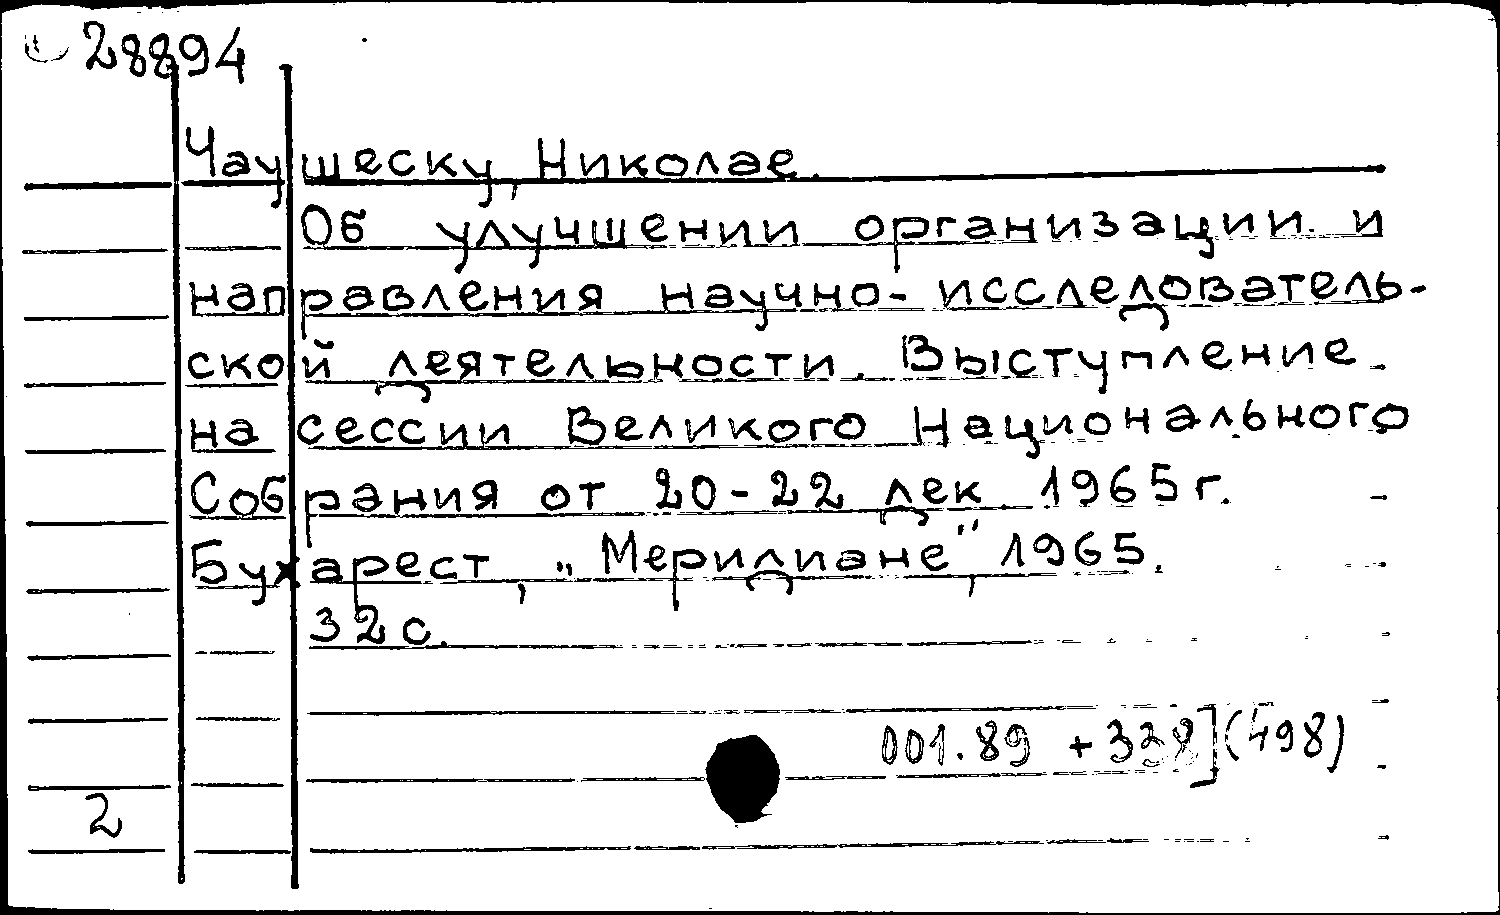 28894
Чаушеску, Николае.
Об улучшении организации и
направления научно-исследователь-
ской деятельности. Выступление
на сессии Великого Национального
Собрания от 20-22 дек 1965 г.
Бухарест, „Меридиане", 1965.
32 с.
001.89 + 338](498)
2